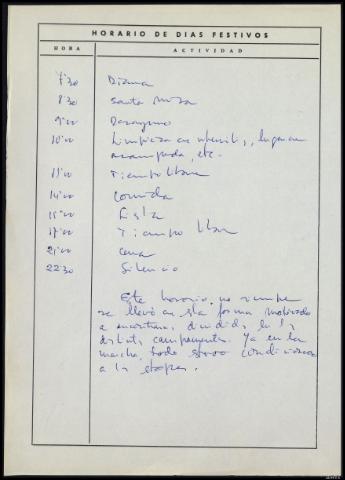 HORARIO DE DIAS FESTIVOS
HORA ACTIVIDAD
7'30 Diana
8'30 Santa Misa
9'00 Desayuno
10'00 Limpieza de utensilios, lugar de
acampada, etc.
Tiempo libre
14'00 Comida
Siesta
17'00 Tiempo libre
21'00 Cena
22'30 Silencio
Este horario, no siempre
se llevó en esta forma motivado
a encontrarse divididos en los
distintos campamentos. Ya en la
marcha, todo estuvo condicionado
a las etapas.